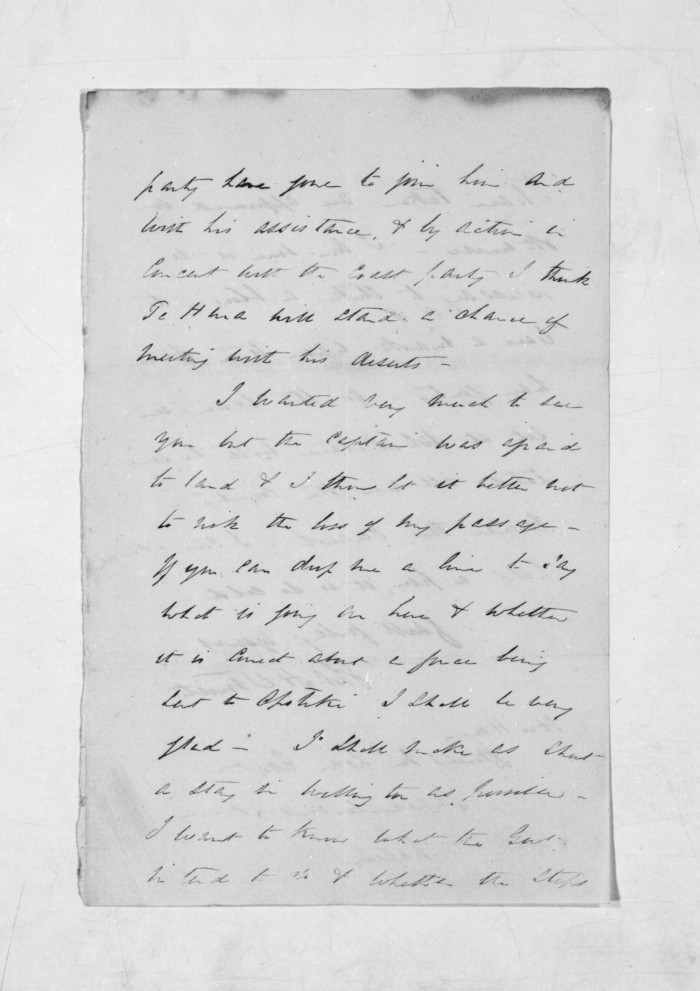 party have gone to join him and
with his assistance, & by action in
Concert with the East party I think
Te Hura will stand a chance of
meeting with his deserts –
I wanted very much to see
you but the Captain was afraid
to land & I thought it better not
to risk the loss of my passage –
If you can drop me a line to say
what is going on here & whether
it is correct about a force being
sent to Opotiki I shall be very
glad – I shall make as short
a stay in Wellington as possible –
I want to know what the Govt.
intend to do & whether the steps